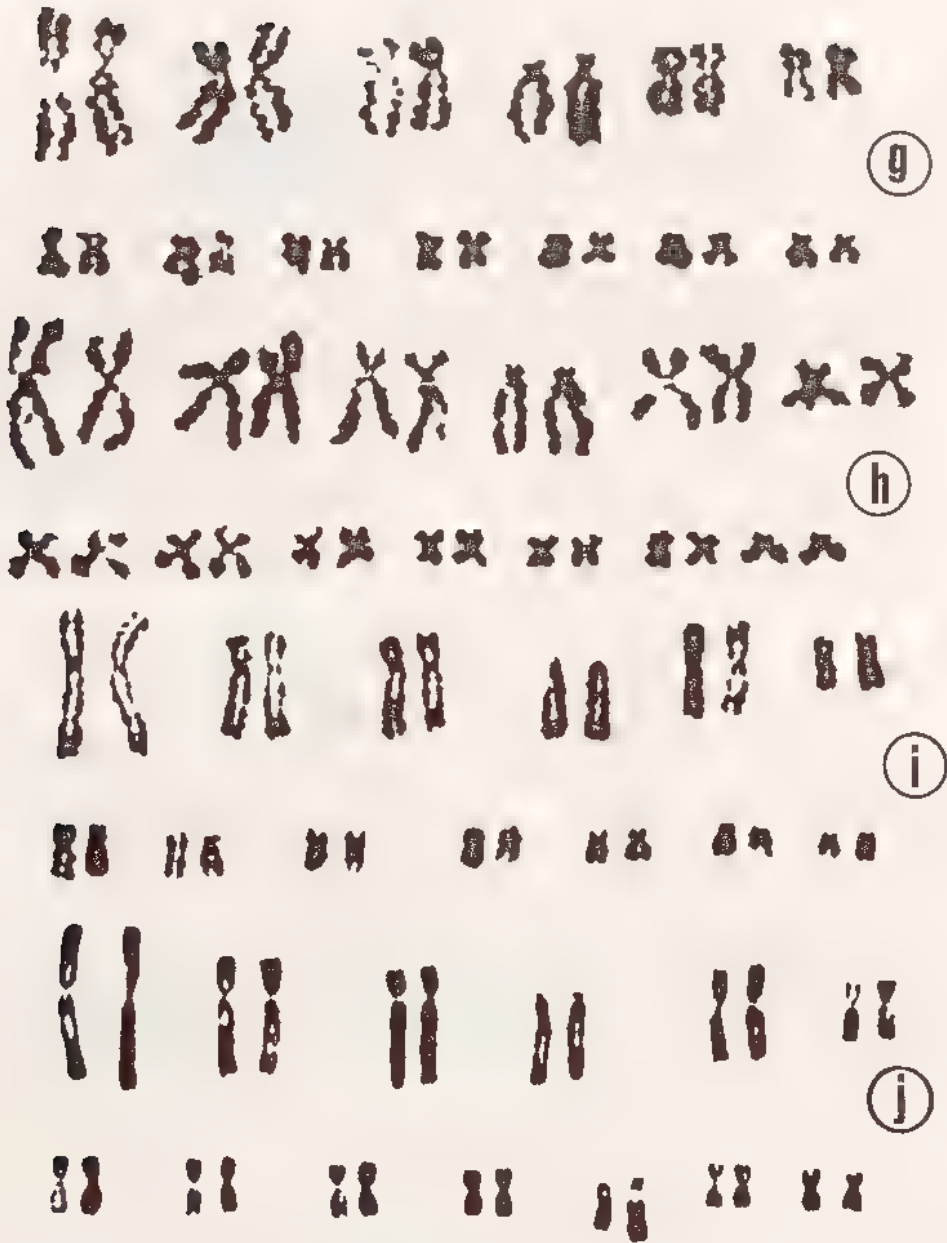 g
h
i
j